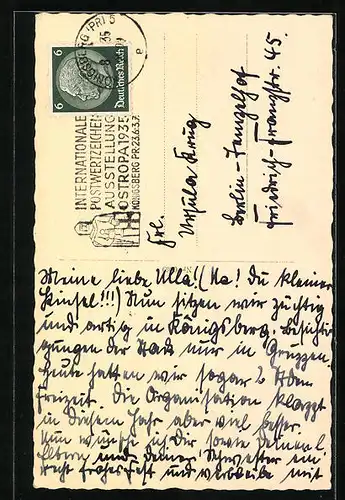 KÖNIGSBERG (PR) 5
6 Deutsches Reich 6
INTERNATIONALE
POSTWERTZEICHEN
AUSSTELLUNG
OSTROPA 1935
KÖNIGSBERG PR. 23.6-3.7.
Frl.
Ursula Krug
Berlin-Tempelhof
Friedrich-Franzstr 45.
Meine liebe Ulla! (Na! Du kleiner
Pinsel!!!) Nun sitzen wir züchtig
und artig in Königsberg. Besichti-
gungen der Stadt nur in Gruppen.
Heute hatten wir sogar 2 Stdn
Freizeit. Die Organisation klappt
in diesem Jahr aber viel besser.
Nun wünsche ich Dir sowie Deinen l.
Eltern und Deiner Schwester ein
recht frohes Fest und verbleibe mit